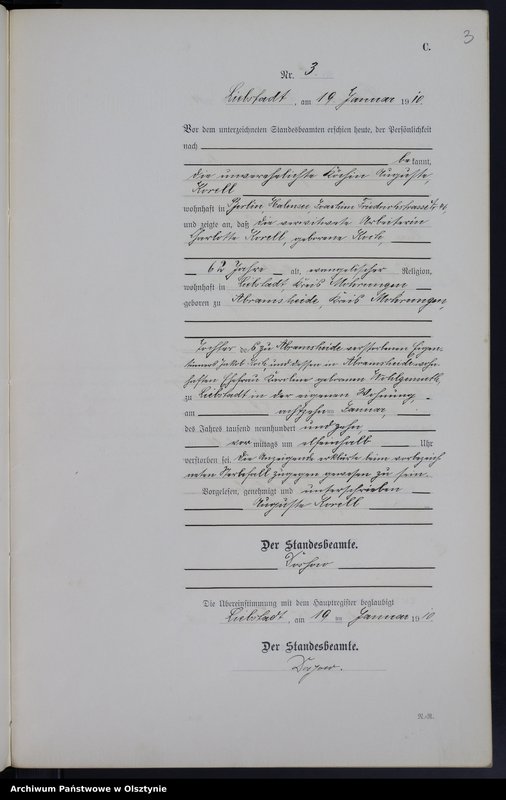 3
C.
Nr. 3.
Liebstadt, am 19 Januar 1910.
Vor dem unterzeichneten Standesbeamten erschien heute, der Persönlichkeit
nach
bekannt,
die unverehelichte Köchin Auguste,
Korell
wohnhaft in Berlin Halensee Joachim Friedrichstrasse
und zeigte an, daß die verwitwete Arbeiterin
Charlotte Korell, geborene
62 Jahre alt, evangelischer Religion,
wohnhaft in Liebstadt, Kreis Mohrungen
geboren zu Abramsheide, Kreis Mohrungen,
Tochter des zu Abramsheide verstorbenen Eigen-
tümers Jakob und dessen in Abramsheide wohn-
haften Ehefrau Karoline geborenen Wohlgemuth,
zu Liebstadt in der eigenen Wohnung,
am achtzehn Januar,
des Jahres tausend neunhundert und zehn
vor mittags um elfeinhalb Uhr
verstorben sei. Die Anzeigende erklärte beim vorbezeich-
neten Sterbefall zugegen gewesen zu sein.
Vorgelesen, genehmigt und unterschrieben
Auguste Korell
Der Standesbeamte.
Die Übereinstimmung mit dem Hauptregister beglaubigt
Liebstadt, am 19 ten Januar 1910.
Der Standesbeamte.
Archiwum Państwowe w Olsztynie